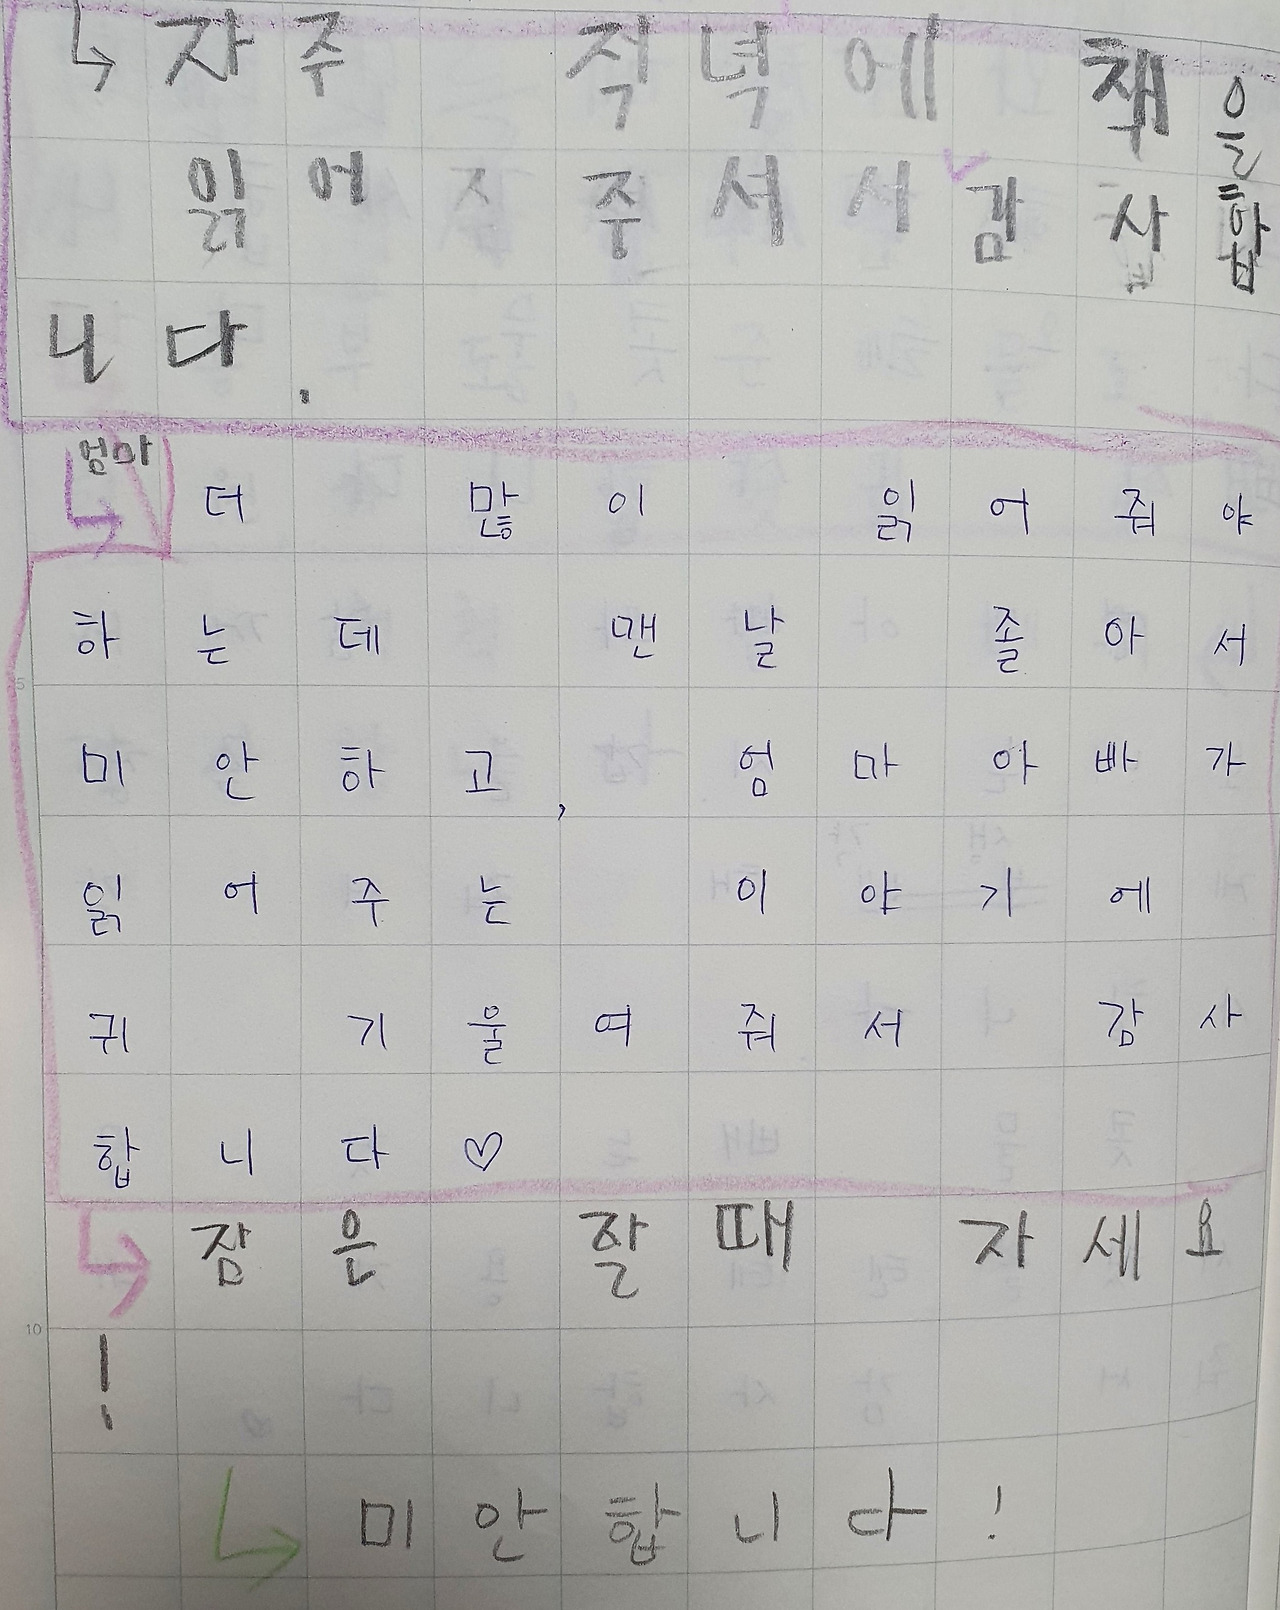 ↳ 자주 저녁에 책을
읽어 주셔서 감사합
니다.
엄마
↳ 더 많이 읽어줘야
하는데 맨날 졸아서
미안하고, 엄마아빠가
읽어주는 이야기에
귀 기울여줘서 감사
합니다♡
↳ 잠은 잘때 자세요
!
↳ 미안합니다!
5
10